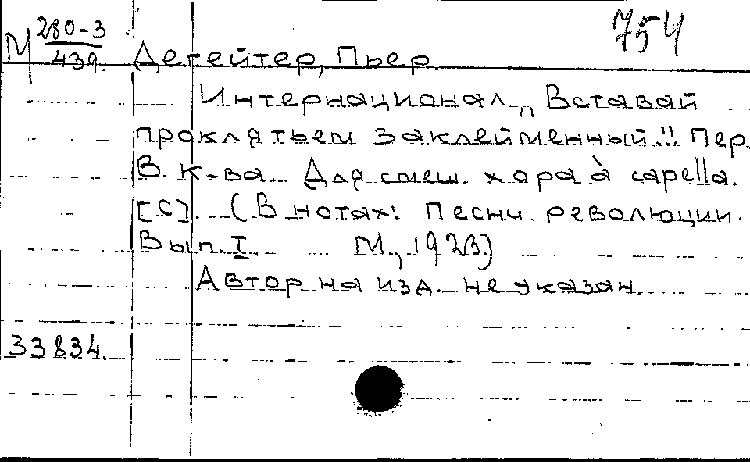 754
М 280-3
439.
Дегейтер, Пьер
Интернационал „ Вставай
проклятьем заклейменный!! Пер.
В. К-ва Для смеш. хора à capella.
[С]. (В нотах: Песни революции.
Вып. I М., 1923)
Автор на изд. не указан.
33834.